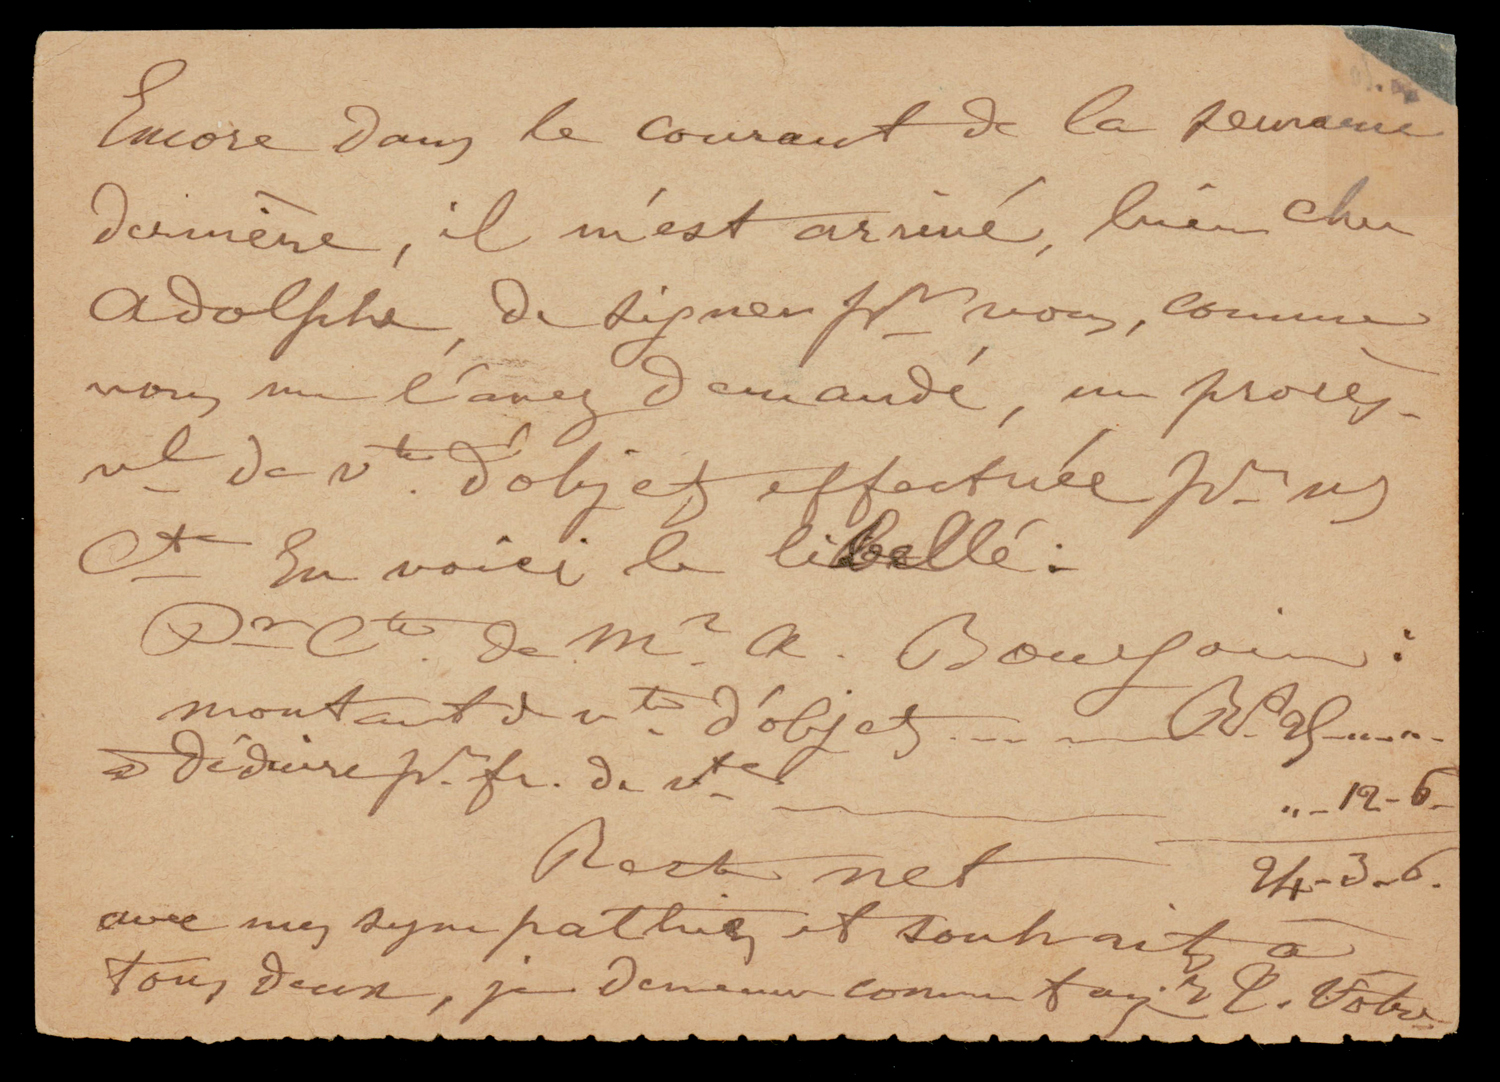 Encore dans le courant de la semaine
dernière, il m'est arrivé, bien cher
Adolphe, de signer pr vous, comme
vous me l'avez demandé, un procès-
vl de vte. d'objets effectuée pr vs
Cte En voici le libellé:
Pr Cte. de Mr. A. Bourgoin:
montant de vte. d'objets
à déduire pr. fr. de vte " - 12 - 6 -
Reste net 24 - 3 - 6.
avec mes sympathies et souhaits à
tous deux, je demeure comme toujrs Votre